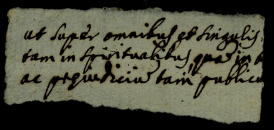 ut super omnibus et singulis
tam in spiritualibus, quam in
ac prejudiciu tam public